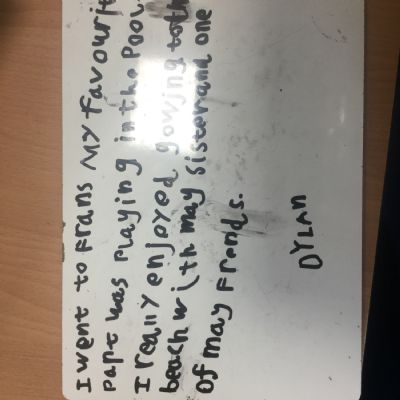 I went to Frans My Favourit
Papt was Playing in the Poo
I really enjoyed gowing to th
beach with may sister and one
of may Frends.
DYLAN